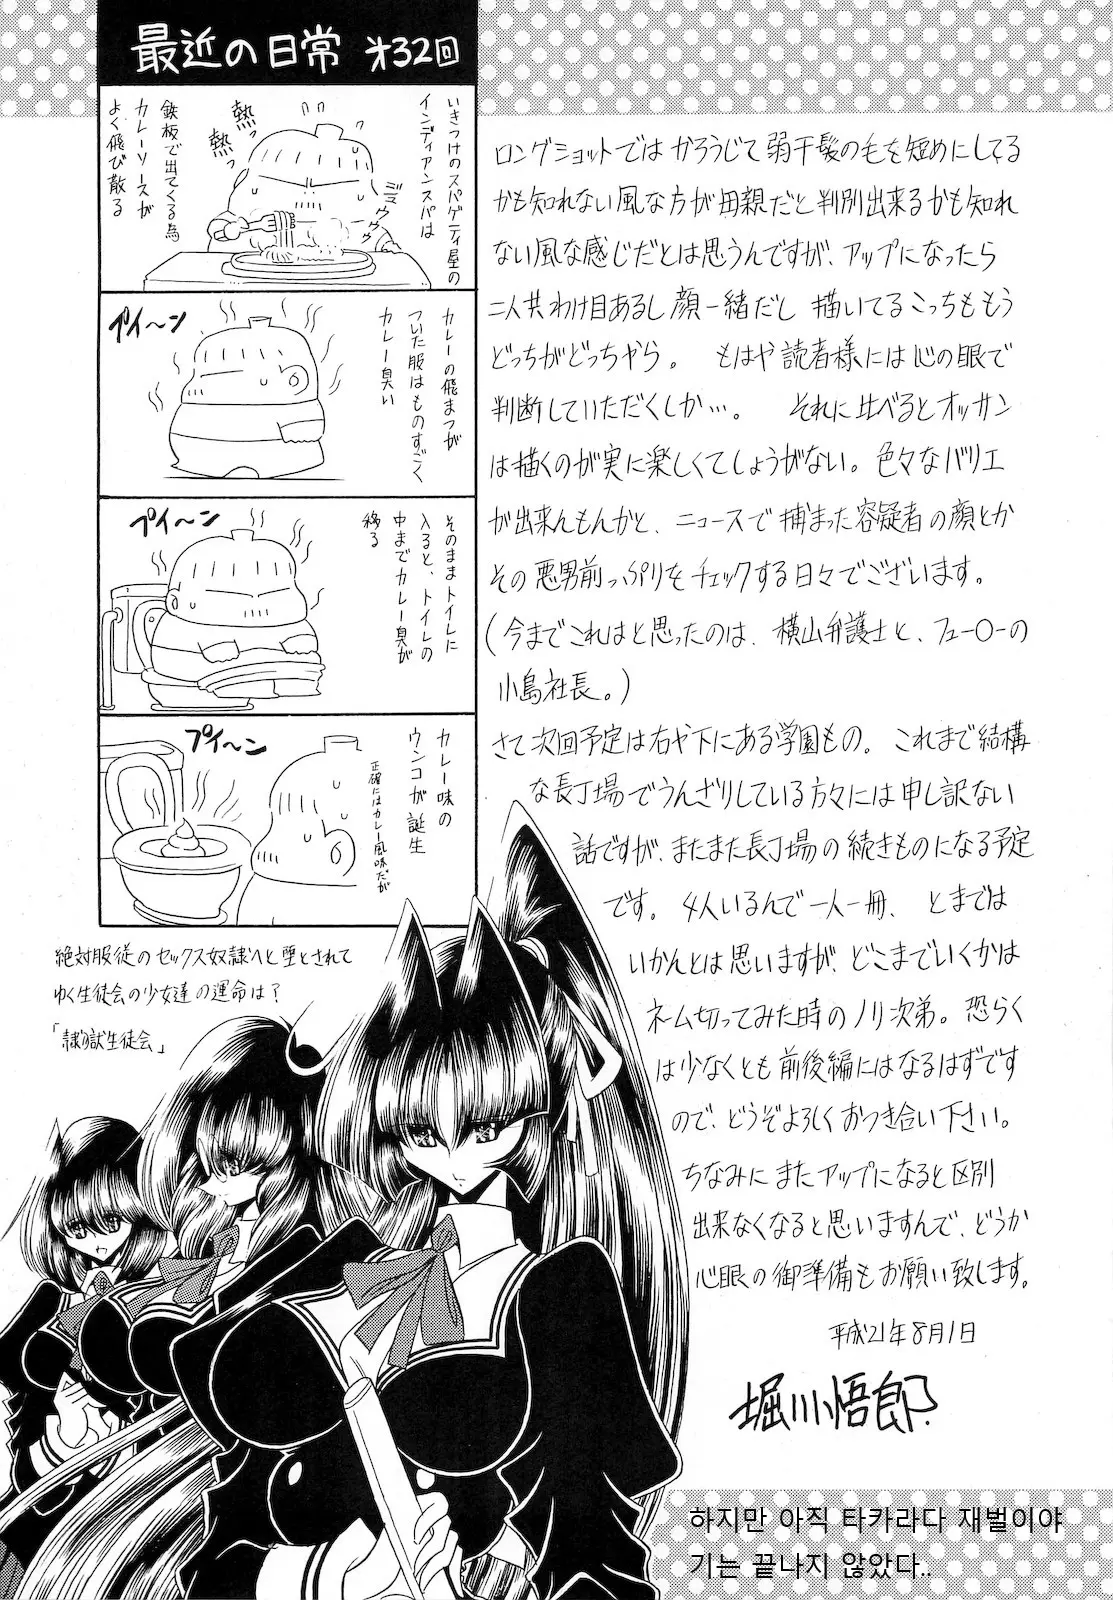 最近の日常 才32回
いきつけのスパゲティ屋の
インディアンスパは
熱っ
熱っ
ミュウゥゥ
鉄板で出てくる為
カレーソースが
よく飛び散る
カレーの飛まつが
ついた服はものすごく
カレー臭い
プイ〜ン
そのままトイレに
入ると、トイレの
中までカレー臭が
移る
プイ〜ン
カレー味の
ウンコが誕生
正確にはカレー風味だが
プイ〜ン
ロングショットではかろうじて弱干髪の毛を短めにしてる
かも知れない風な方が母親だと判別出来るかも知れ
ない風な感じだとは思うんですが、アップになったら
二人共わけ目あるし顔一緒だし 描いてるこっちももう
どっちがどっちやら。 もはや読者様には心の眼で
判断していただくしか…。 それに比べるとオッサン
は描くのが実に楽しくてしょうがない。色々なバリエ
が出来んもんかと、ニュースで捕まった容疑者の顔とか
その悪男前っぷりをチェックする日々でございます。
(今までこれはと思ったのは、横山弁護士と、フュー〇ーの
小島社長。)
さて次回予定は右や下にある学園もの。これまで結構
な長丁場でうんざりしている方々には申し訳ない
話ですが、またまた長丁場の続きものになる予定
です。4人いるんで一人一冊、とまでは
いかんとは思いますが、どこまでいくかは
ネーム切ってみた時のノリ次弟。恐らく
は少なくとも前後編にはなるはずです
ので、どうぞよろしくおつき合い下さい。
ちなみにまたアップになると区別
出来なくなると思いますんで、どうか
心眼の御準備もお願い致します。
平成21年8月1日
堀川悟郎
絶対服従のセックス奴隷へと堕とされて
ゆく生徒会の少女達の運命は?
「隷獄生徒会」
하지만 아직 타카라다 재벌이야
기는 끝나지 않았다..